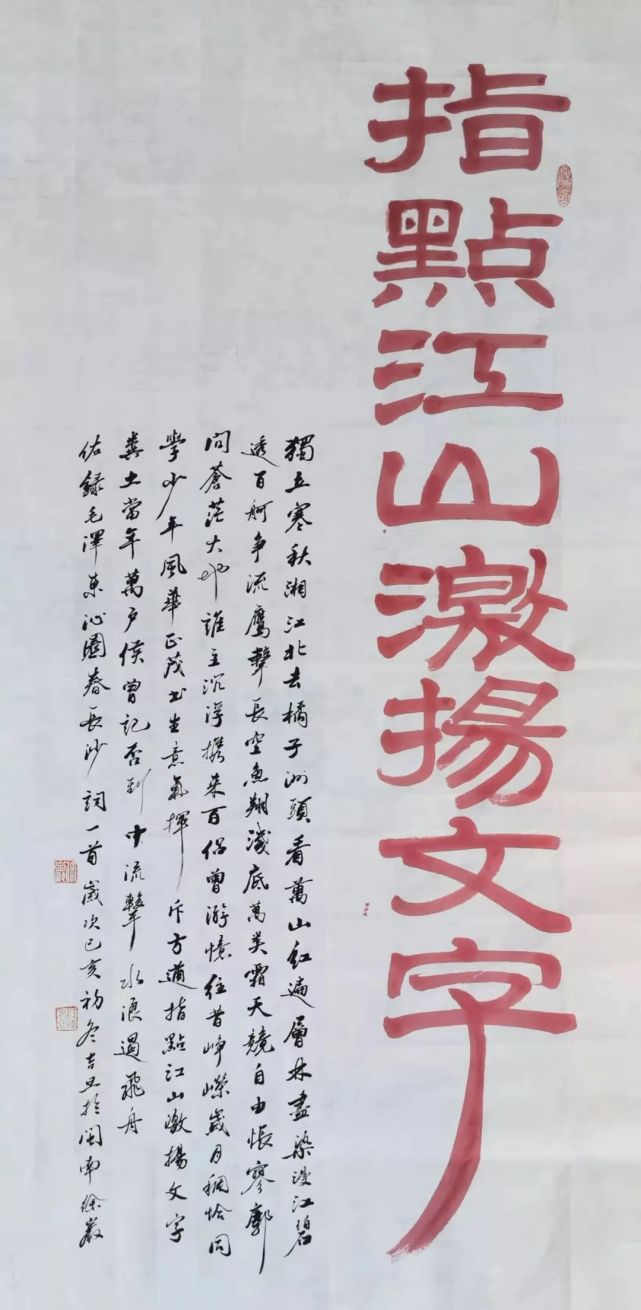 指點江山激揚文字
獨立寒秋湘江北去橘子洲頭看萬山红遍層林盡染漫江碧
透百舸争流鷹擊長空魚翔淺底萬类霜天競自由悵寥廓
问蒼茫大地誰主沉浮携來百侣曾游憶往昔崢嶸歲月稠恰同
學少年風華正茂书生意氣揮斥方遒指點江山激揚文字
糞土當年萬户侯曾記否到中流擊水浪遏飛舟
佑錄毛澤東沁園春長沙詞一首歲次己亥初冬吉旦於閩南徐